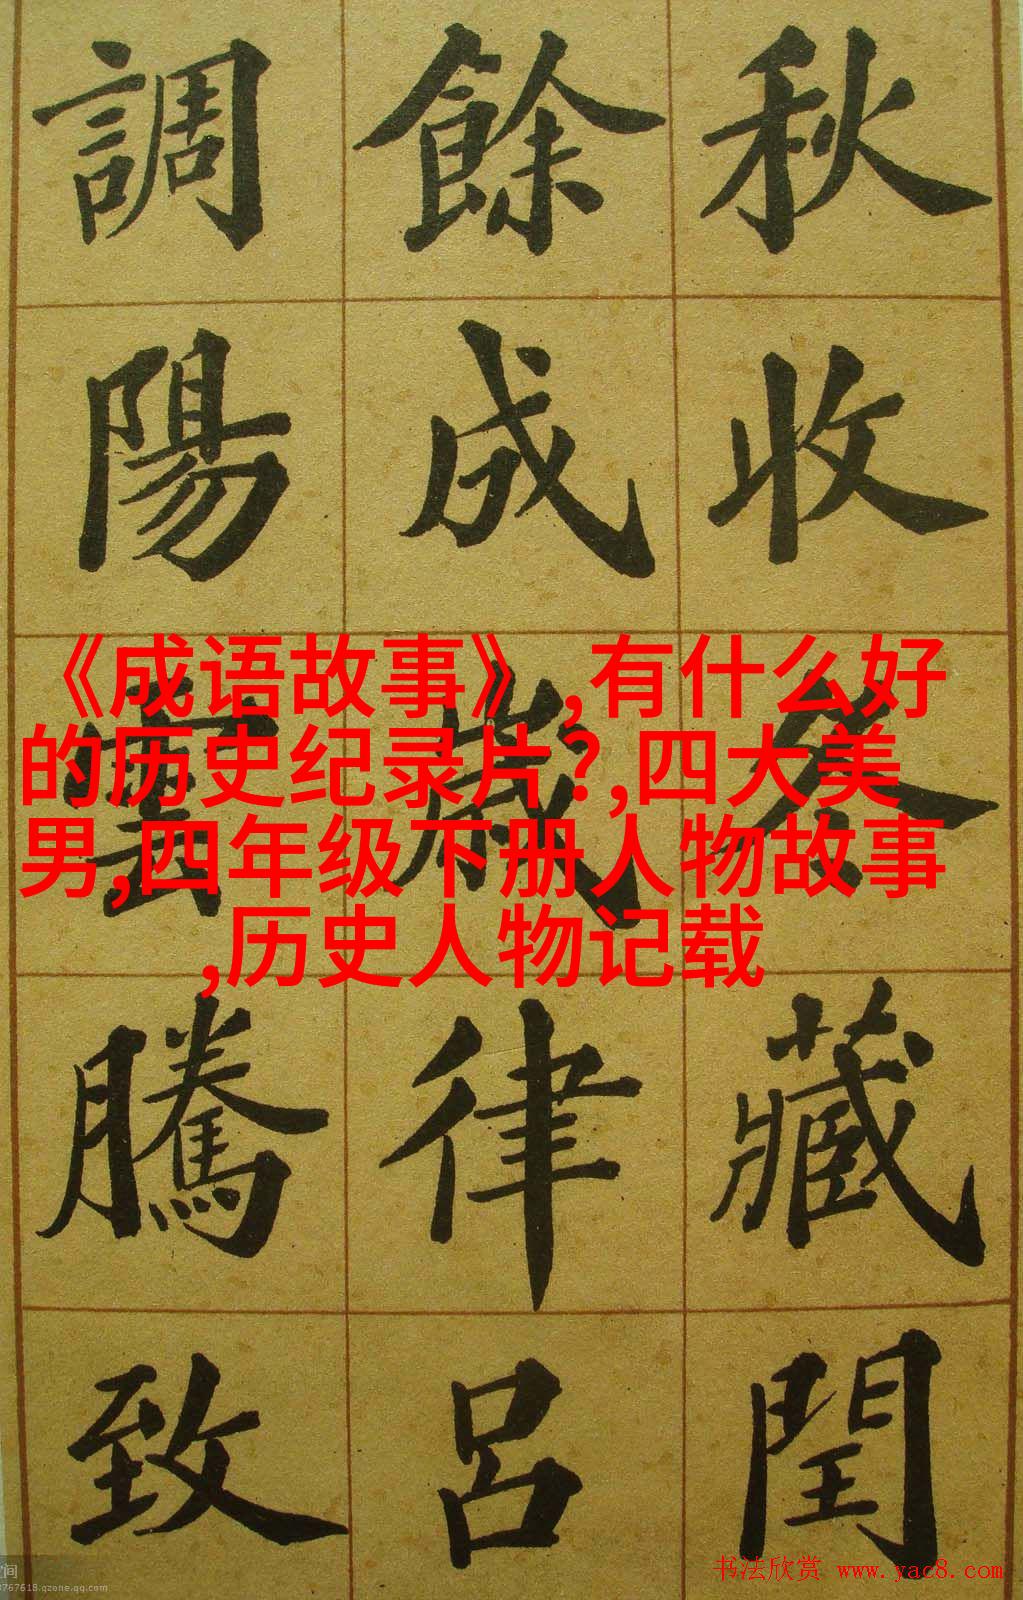 秋收冬藏閏
餘成歲律呂
調陽雲騰致
《成语故事》,有什么好
的历史纪录片?,四大美
男,四年级下册人物故事
,历史人物记载
书法欣赏 www.yac8.com
空间
8767618.qzone.qq.com